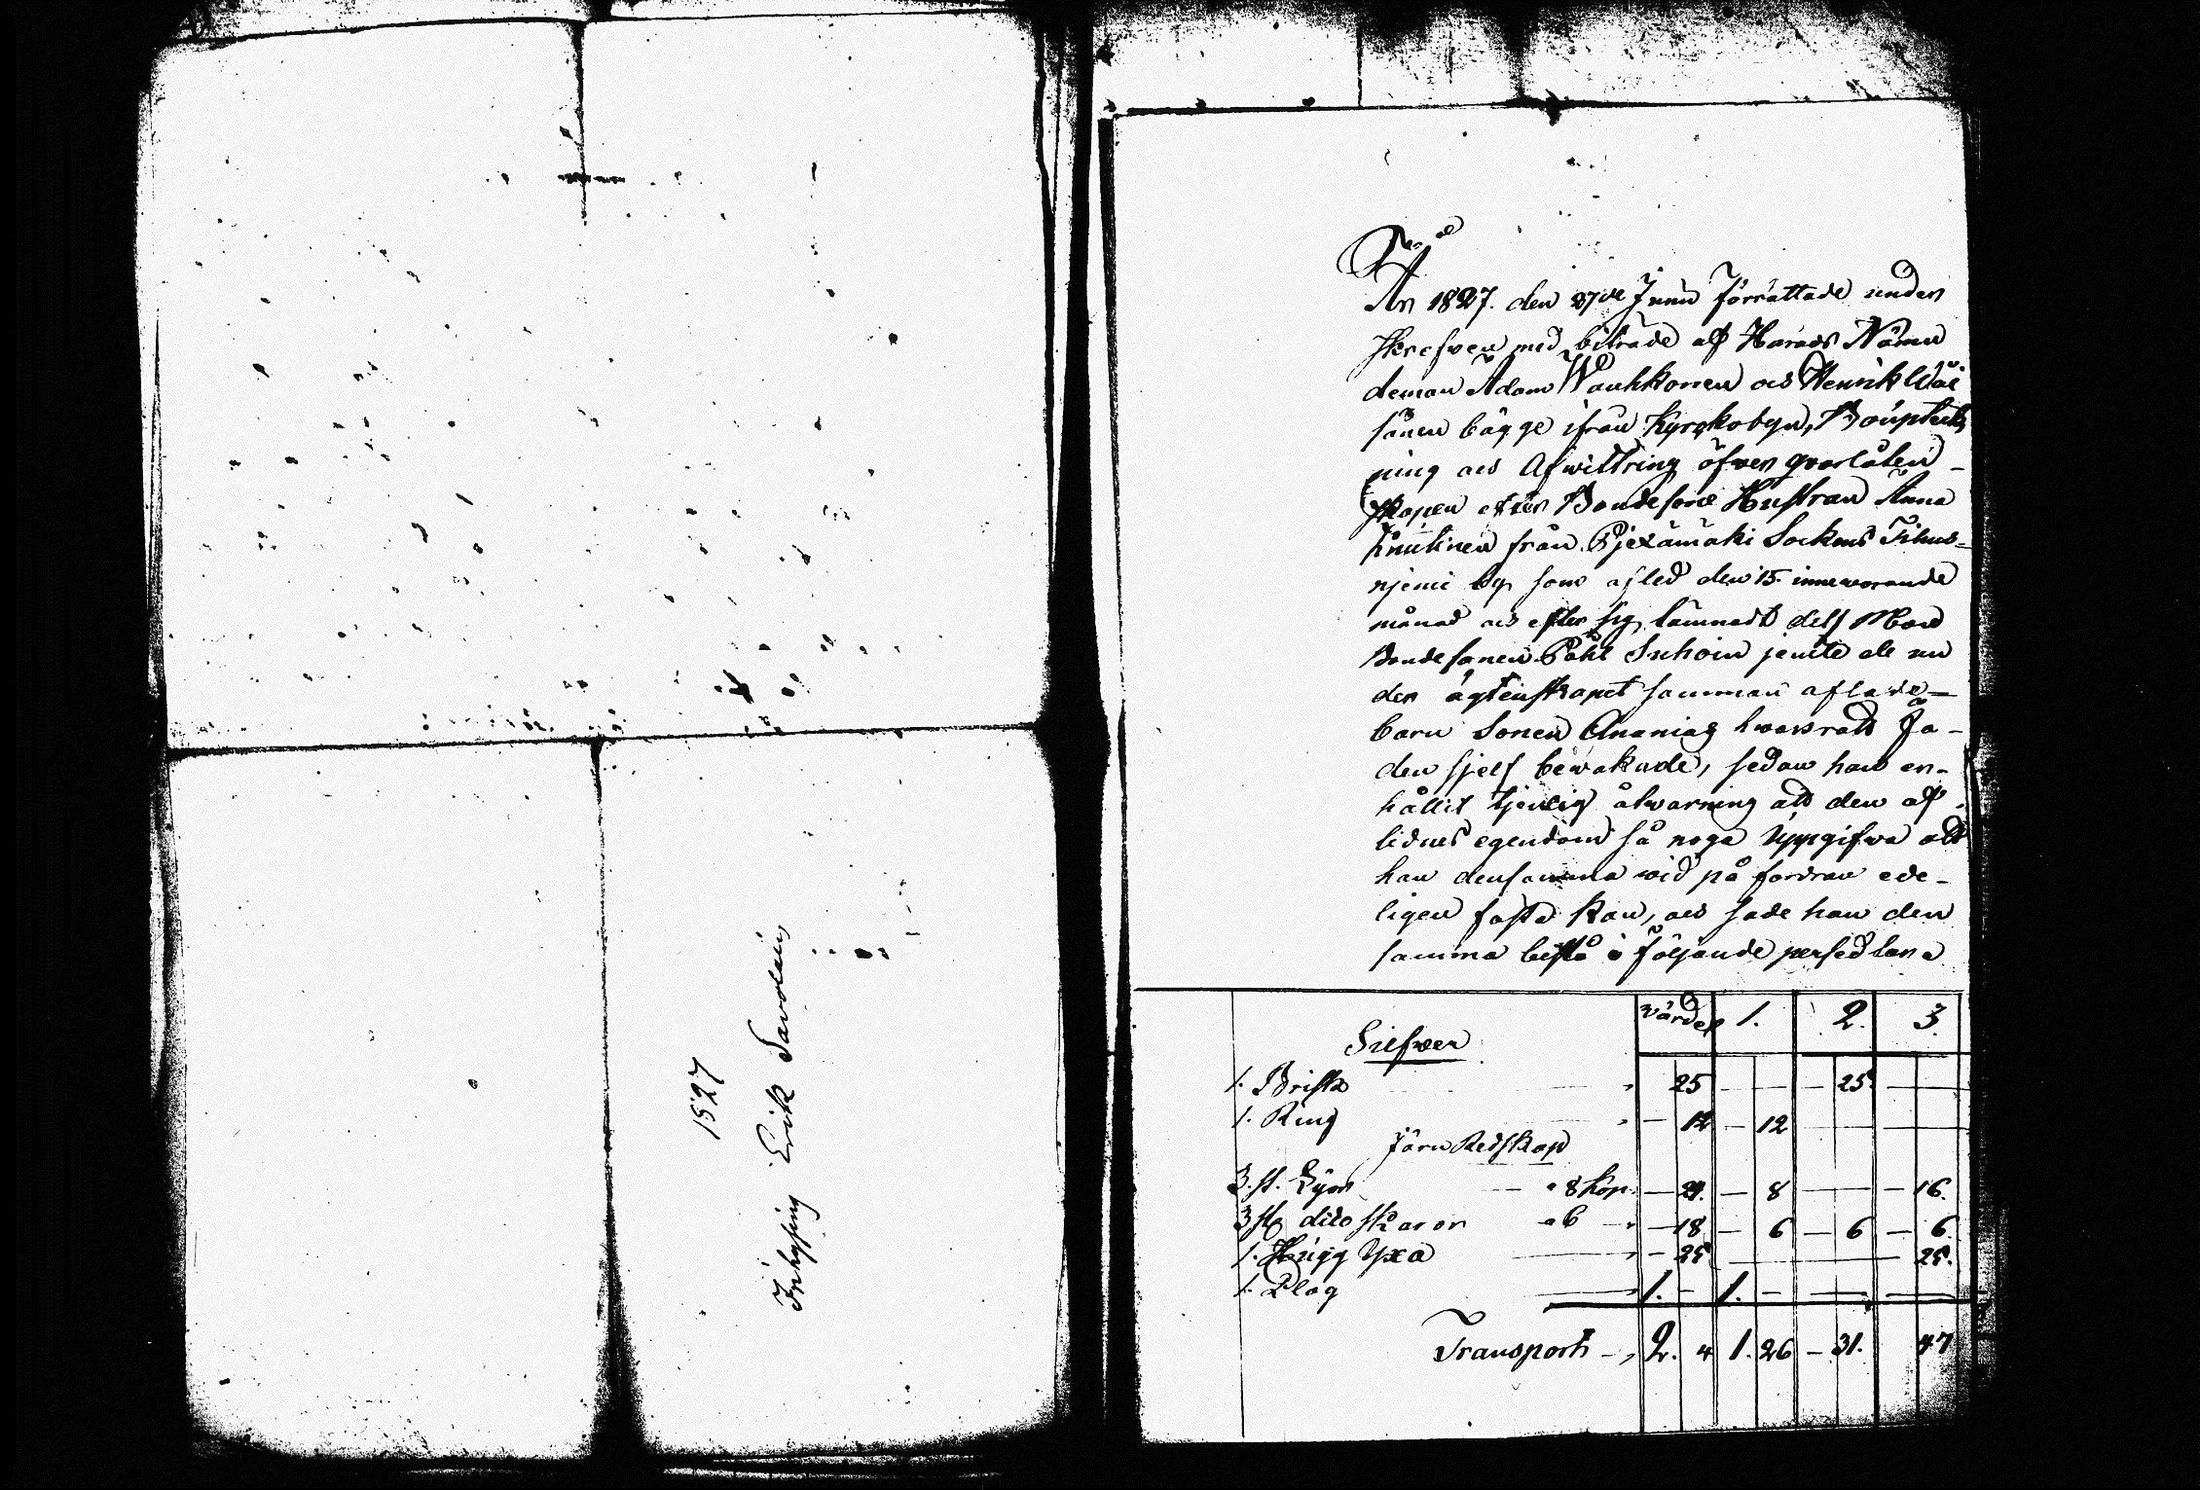 1527
Inhysing Erik Savolain
År 1827. den 27de Junii förrättade under
skrefven med biträde af Härads Nämn
deman Adam Wauhkonen och Henrik Wäi
sänen bägge ifrån Kyrkobyn, Bouptek
ning och Afwittring öfver qvarlåten-
skapen efter Bondesons Hustrun Anna
Knutinen från Pjexämäki Sockens Tihus-
njemi by som afled den 15. innevarande
månad och efter sig lämnadt dels Man
Bondesonen Påhl Suhoin jemte de un
der ägtenskapet samman aflade
barn Sonen Ananias hwars rätt Fa-
den sjelf bewakade, sedan han er-
hållit tjenlig åtwarning att den af-
lidnes egendom så noga Uppgifwa att
han densamma wid på fordran ede-
ligen fästa kan, och sade han den
samma bestå i följande persedlar a
värdet 1. 2. 3.
Silfwer
1. Briska 25 — — — 25. — —
1. Ring — 12 — 12 — — — —
Järn Redskap
3. st. Lÿor — " 8 kop. — 24. — 8 — — — 16.
3 st dito skäror " 6 — — 18 — 6 — 6 — 6
1. Hugg Yxa — — 25 — — — — — 25.
1. Plog — 1. — 1. — — — — —
Transport — 2. 4 1. 26 — 31. 47